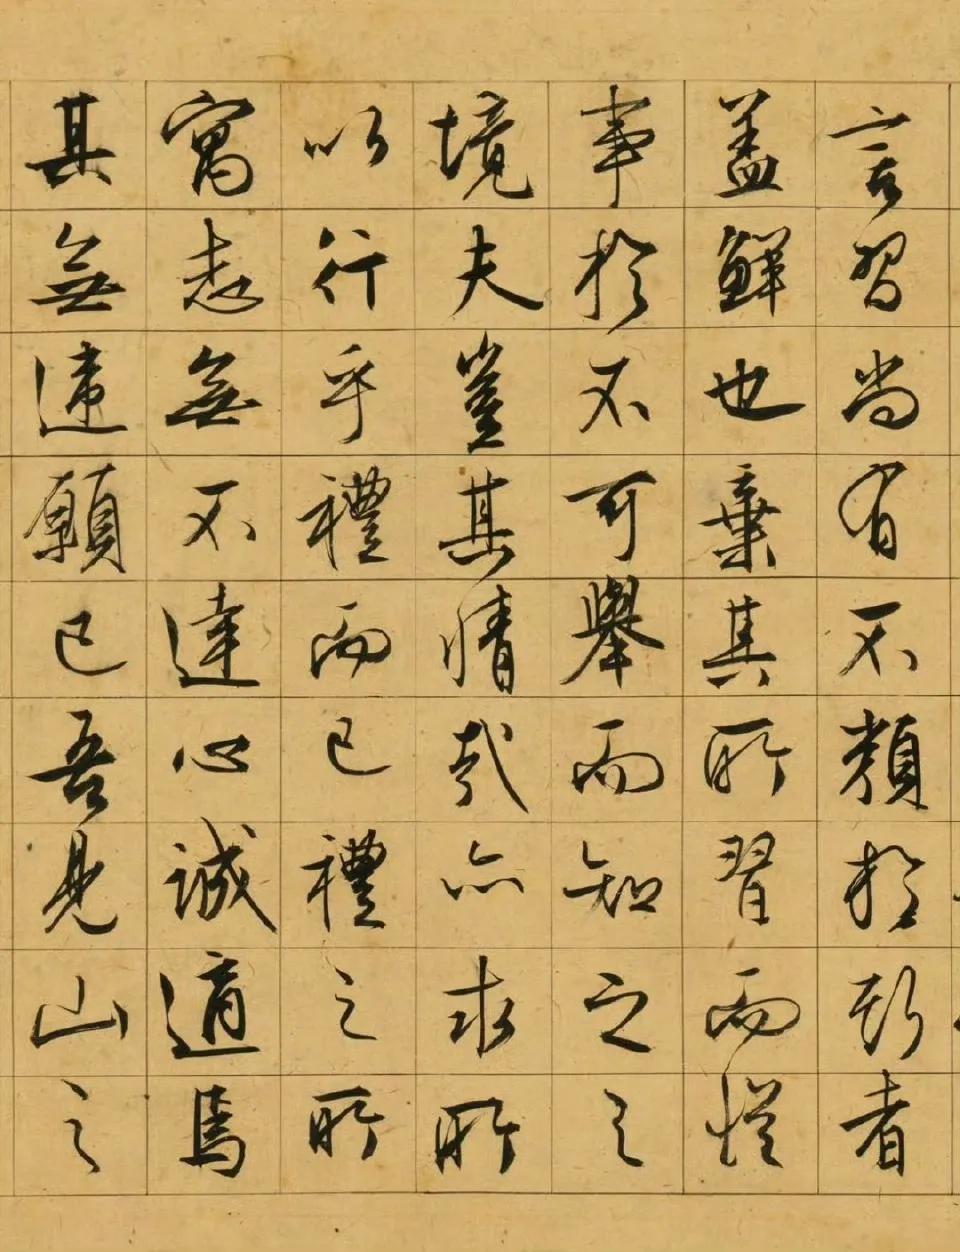 言習尚有不類於斯者
蓋鮮也棄其所習而從
事於不可舉而知之之
境夫豈其情哉亦求所
以行乎禮而已禮之所
寓志無不達心誠適焉
其無違願已吾見山之